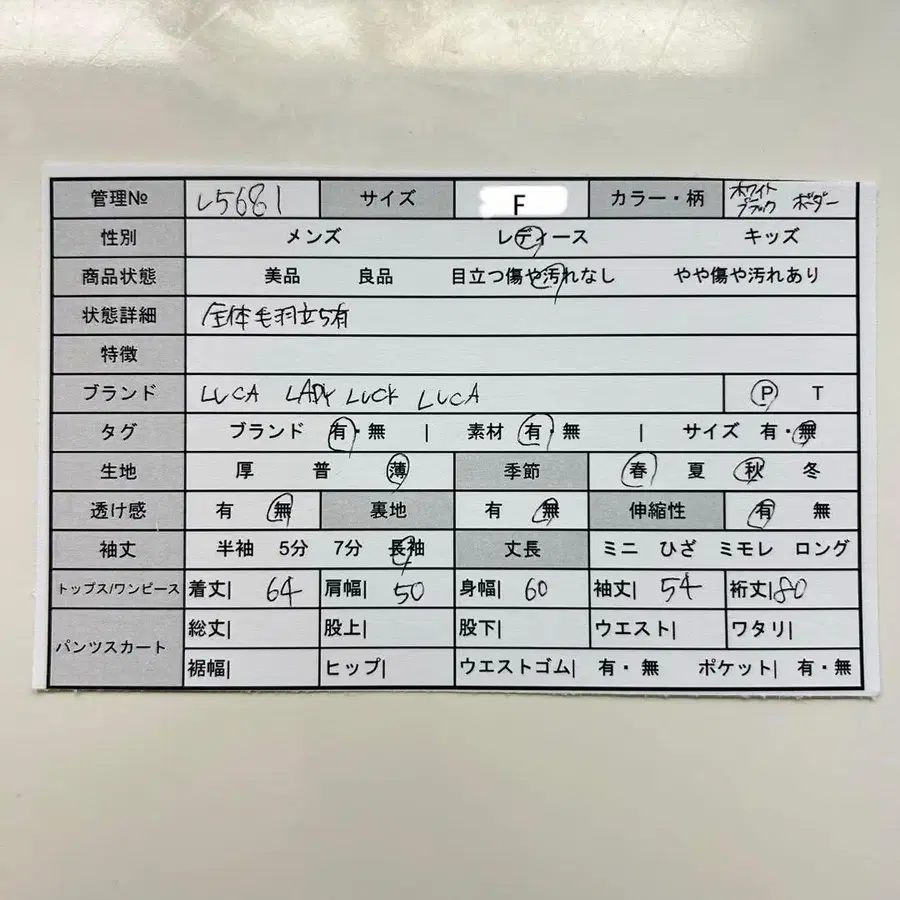 管理№ L5681 サイズ F カラー・柄 ホワイト ブラック ボーダー
性別 メンズ レディース キッズ
商品状態 美品 良品 目立つ傷や汚れなし やや傷や汚れあり
状態詳細 全体毛羽立ち有
特徴
ブランド LUCA LADY LUCK LUCA P T
タグ ブランド 有・無 | 素材 有・無 | サイズ 有・無
生地 厚 普 薄 季節 春 夏 秋 冬
透け感 有 無 裏地 有 無 伸縮性 有 無
袖丈 半袖 5分 7分 長袖 丈長 ミニ ひざ ミモレ ロング
トップス/ワンピース 着丈| 64 肩幅| 50 身幅| 60 袖丈| 54 裄丈| 80
パンツスカート 総丈| 股上| 股下| ウエスト| ワタリ|
裾幅| ヒップ| ウエストゴム| 有・無 ポケット| 有・無